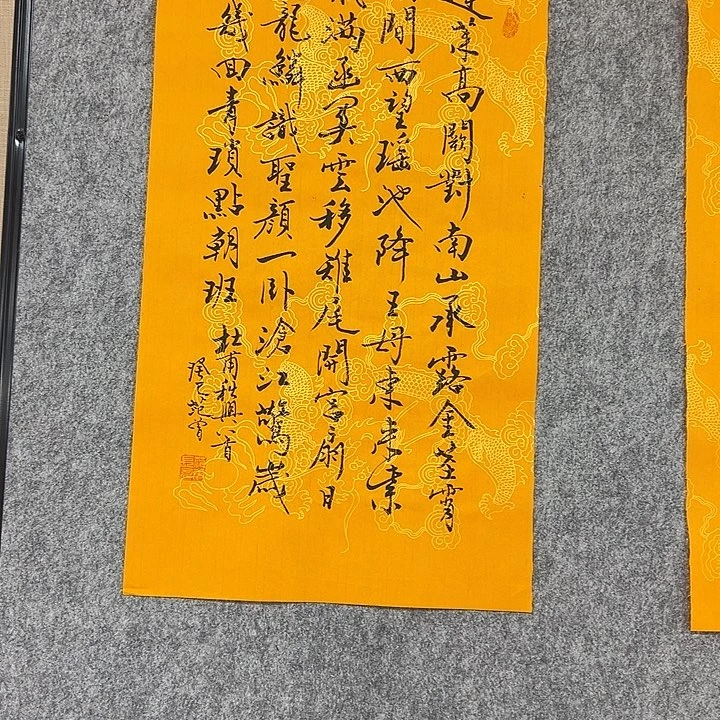 萊高闕對南山承露金莖霄
間西望瑶池降王母東来紫
滿函關雲移雉尾開宮扇日
龍鱗識聖顏一臥滄江驚歲
幾回青瑣點朝班 杜甫秋興八首
癸巳